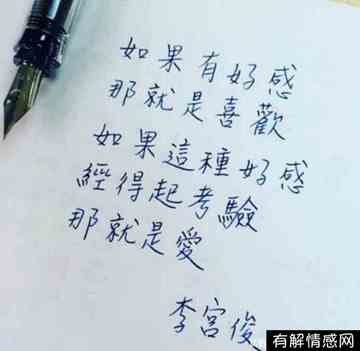 如果有好感
那就是喜歡
如果這種好感
經得起考驗
那就是愛
李宮俊
有解情感网